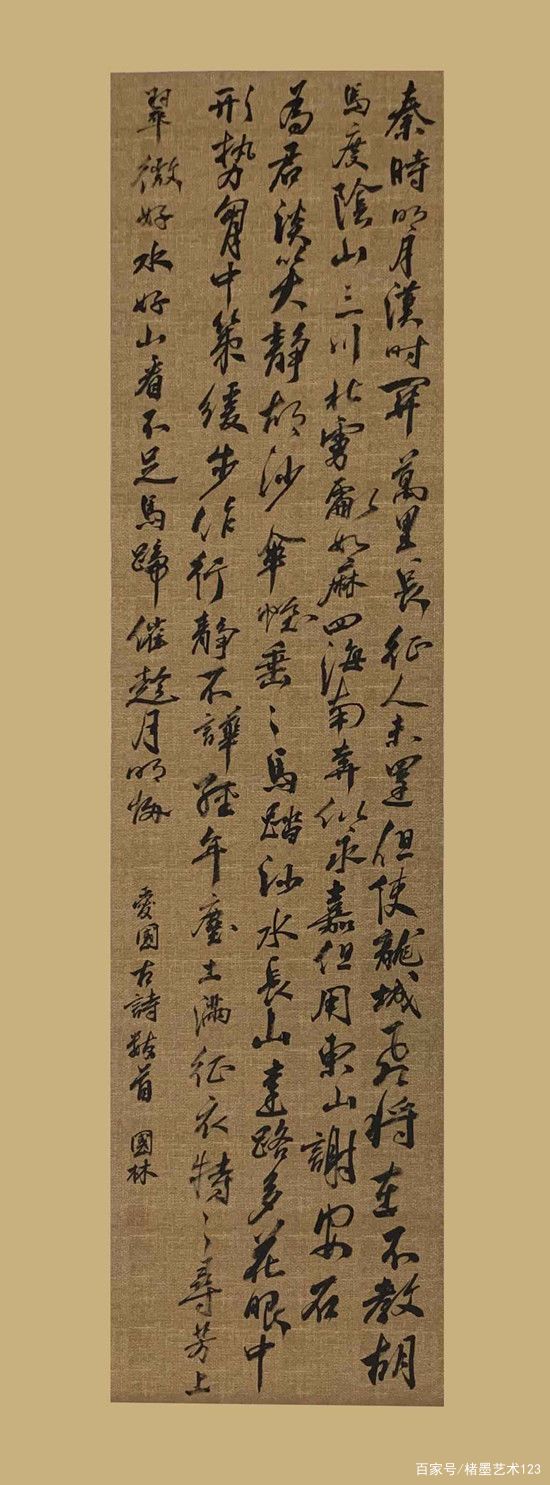 秦時明月漢时關萬里長征人未還但使龍城飛將在不教胡
馬度陰山三川北虜亂如麻四海南奔似永嘉但用東山謝安石
為君談笑静胡沙傘幄垂〻馬踏沙水長山遠路多花眼中
形勢胷中策緩步徐行静不譁經年塵土滿征衣特〻尋芳上
翠微好水好山看不足馬蹄催趁月明歸
愛國古詩數首 國林
百家号/楮墨艺术123